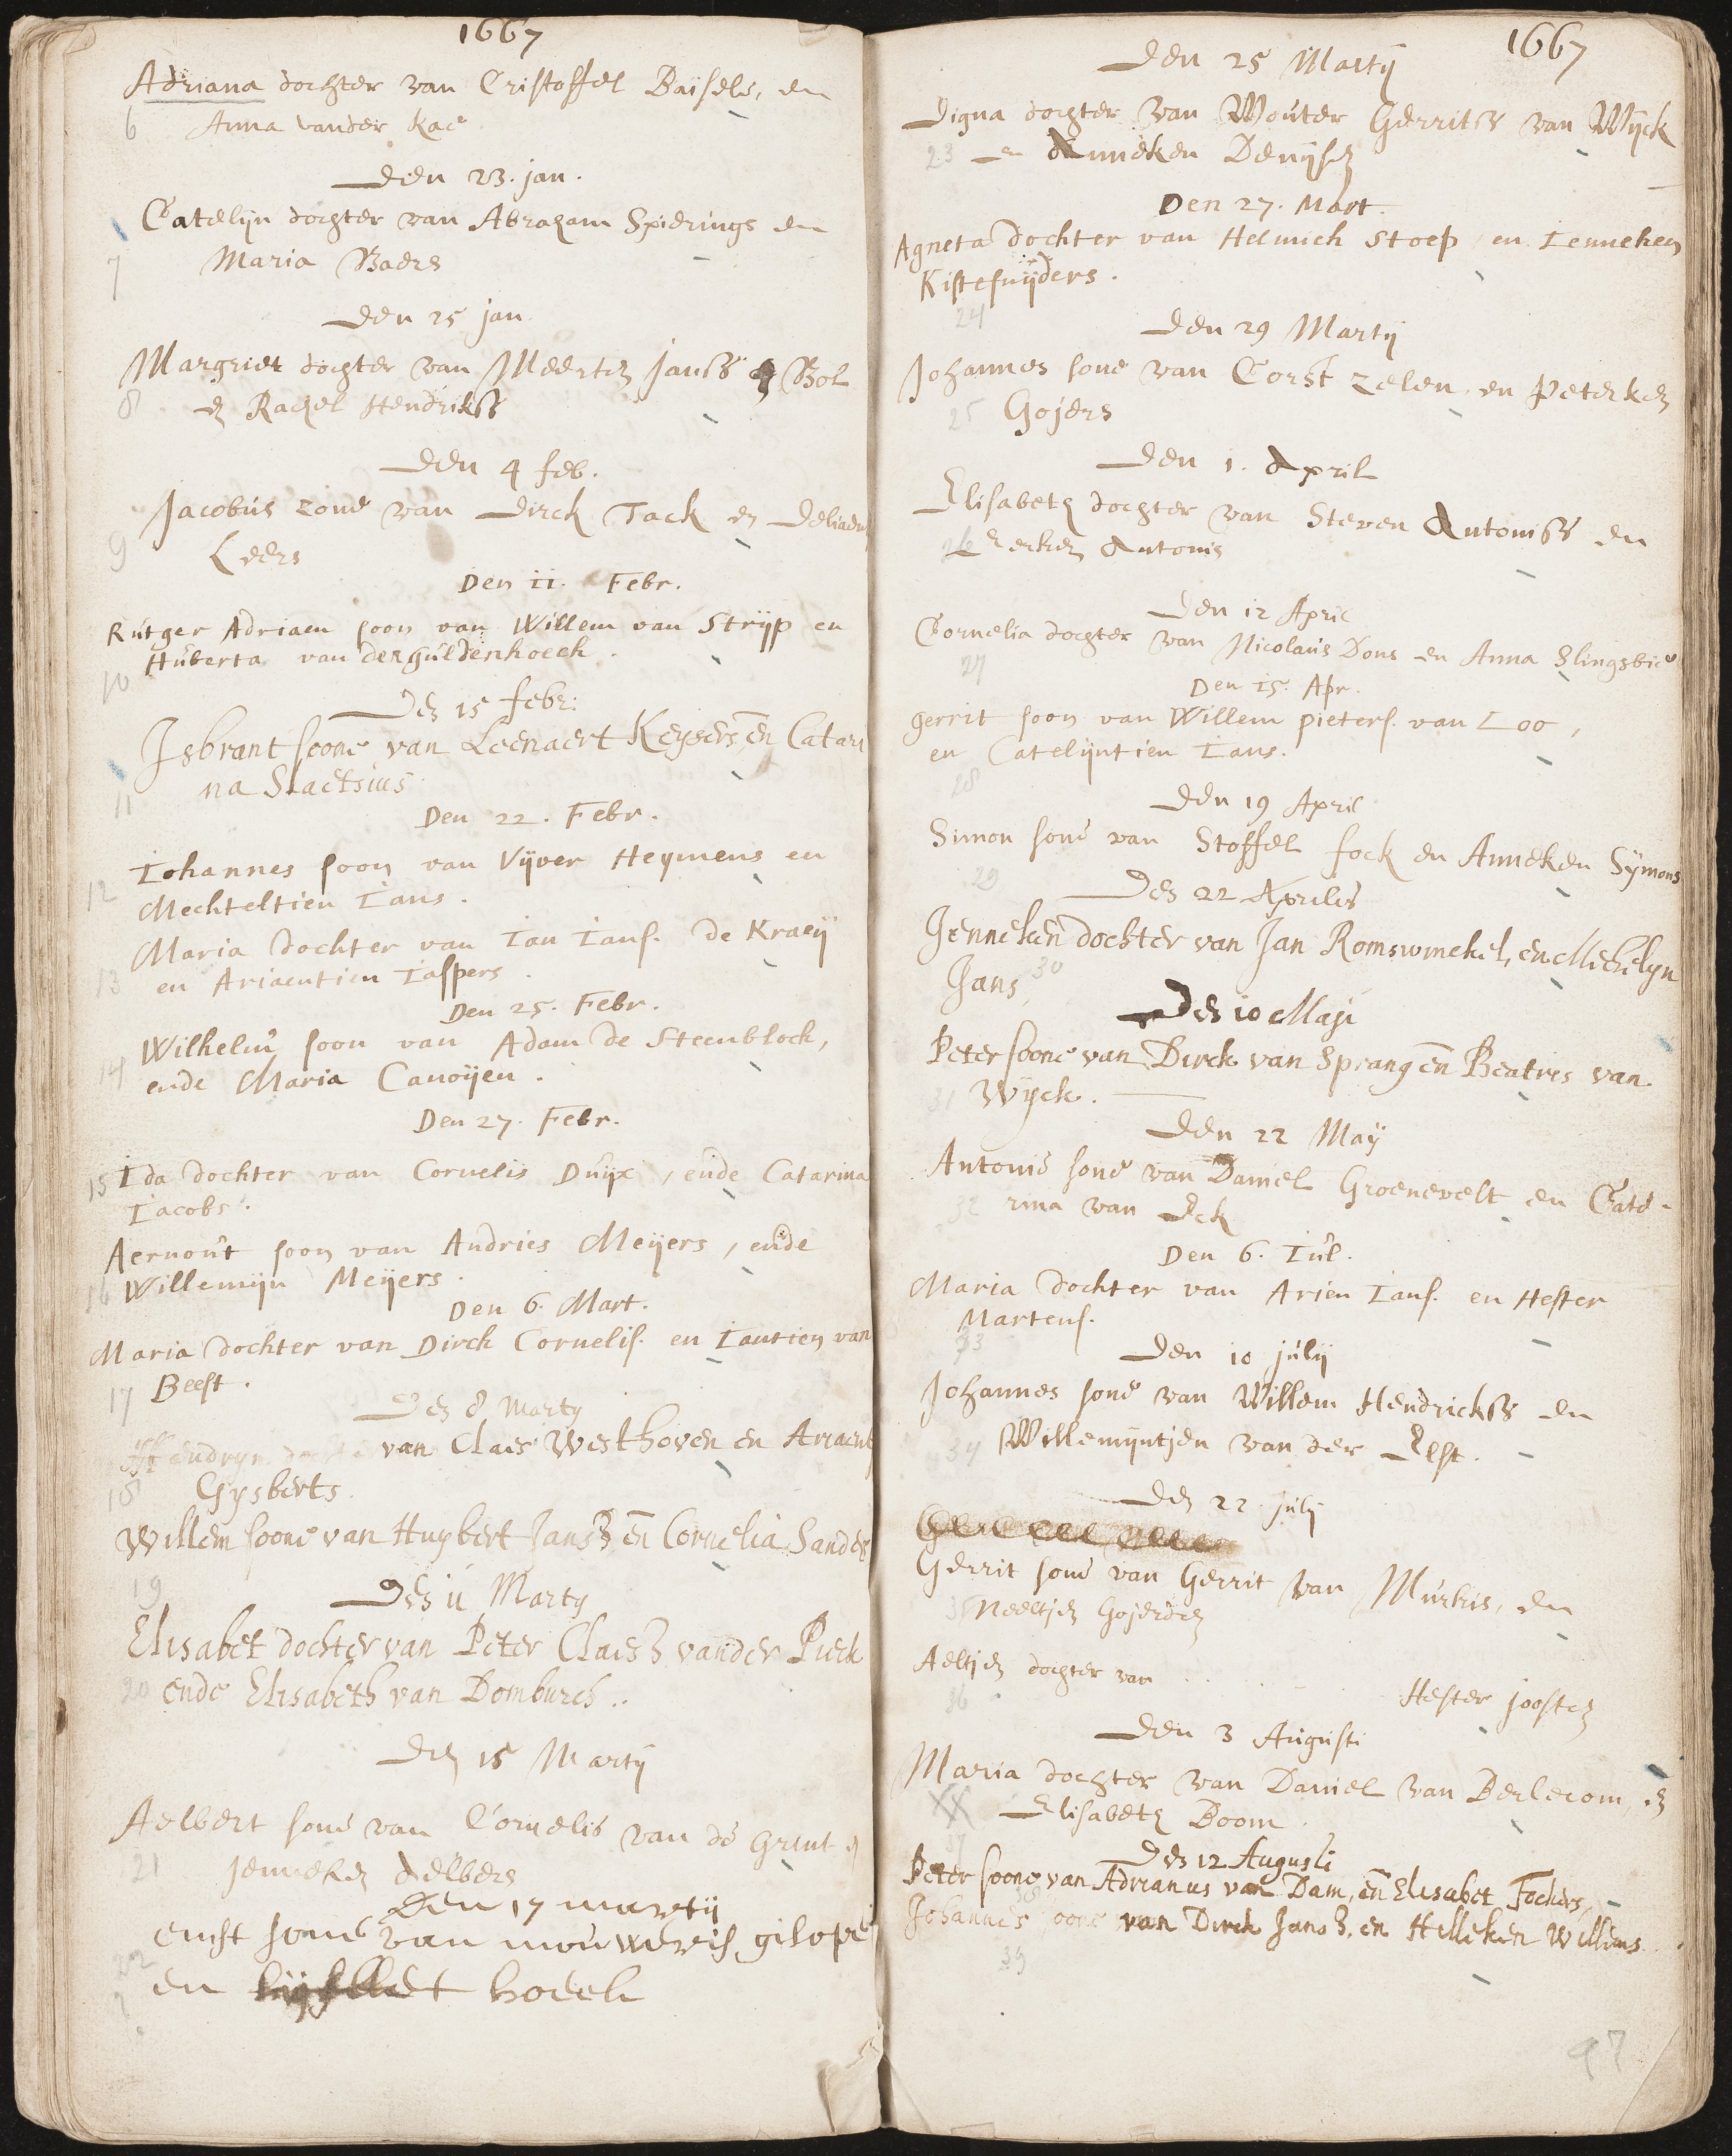 1667
Adriana dochter van Cristoffel Baisels, en
6 Anna vander Kae
Den 23. jan.
Catelijn dochter van Abraham Spierings en
7 Maria Baers
Den 25 jan
Margriet dochter van Meerten Janss Bol
8 en Rachel Hendrikss
Den 4 feb.
Jacobus zone van Dirck Tack en Deliaen
9 Leers
Den 11. Febr.
Rutger Adriaen soon van Willem van Strijp en
Huberta van der guldenhoeck.
10
Den 15 febr:
Isbrant soone van Leenaert Keysers en Catari
11 na Slaetsius
Den 22. Febr.
12 Iohannes soon van Vijver Heymens en
Mechteltien Ians.
Maria dochter van Ian Ians. de Kraeij
13 en Ariaentien Iaspers.
Den 25. Febr.
Wilhelm soon van Adam de Steenblock,
14 ende Maria Canoijen.
Den 27. Febr.
15 Ida dochter van Cornelis Duijx, ende Catarina
Iacobs.
Aernout soon van Andries Meijers, ende
16 Willemijn Meijers.
Den 6. Mart.
Maria dochter van Dirck Cornelis. en Iantien van
17 Beest.
Den 8 Marty
Hendryn dochter van Claes Westhoven en Ariaent
18 Gysberts.
Willem soone van Huybert Jansz en Cornelia Sanders
19
Den 11 Marty
Elisabet dochter van Peter Claesz vander Pieck
20 ende Elisabeth van Domburch..
Den 15 Martij
Aelbert sone van Cornelis van de Grint en
21 Jenneken Aelbers
Den 17 martij
ernst sone van mouweris gilope
22 en hoeck
1667
Den 25 Martij
Digna dochter van Wouter Gerritss van Wijck
23 en Anneken Denijsen
Den 27. Mart.
Agneta dochter van Helmich Stoep, en Ienneken
Kistesnijders.
24
Den 29 Martij
Johannes sone van Corst Zelen, en Peterken
25 Gojers
Den 1. April
Elisabeth dochter van Steven Antoniss en
26 Antonis
Den 12 April
Cornelia dochter van Nicolaus Dons en Anna Slingsbie
27
Den 15. Apr.
Gerrit soon van Willem pieters. van Loo,
en Catelijntien Ians.
28
Den 19 April
Simon sone van Stoffel fock en Anneken Sijmons
29
Den 22 Aprilis
Jenneken dochter van Jan Romswinckel, en Michelyn
Jans, 30
Den 10 Maji
Peter soone van Dirck van Sprang en Beatris van
31 Wyck.
Den 22 Maij
Antonie sone van Daniel Groenevelt en Cate-
32 rina van Eck
Den 6. Iul.
Maria dochter van Arien Ians. en Hester
Martens.
33
Den 10 julij
Johannes sone van Willem Hendrickss en
34 Willemijntjen van der Elst.
Den 22 julij
Gerrit sone van Gerrit van Murkis, en
35 Neeltjen Gojerden
Aeltjen dochter van . . . . .
36 Hester joosten
Den 3 Augusti
Maria dochter van Daniel van Berlecom, en
Elisabeth Boom.
37
Den 12 Augusti
Peter soone van Adrianus van Dam, en Elisabet Fockers,
38
Johannes soone van Dirck Jansz. en Hilleken Willems.
39
97